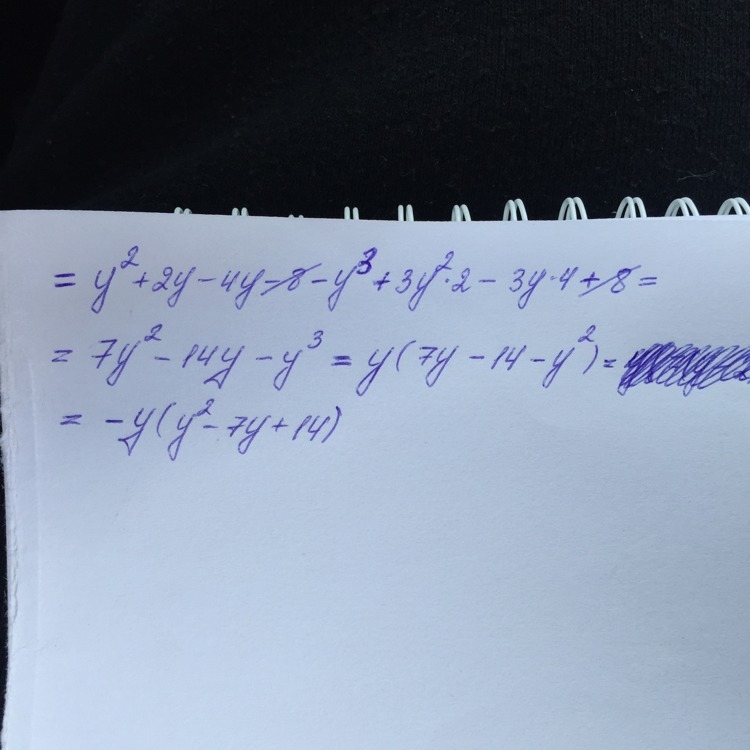 = y² + 2y - 4y - 8 - y³ + 3y² · 2 - 3y · 4 + 8 =
= 7y² - 14y - y³ = y(7y - 14 - y²) =
= -y(y² - 7y + 14)